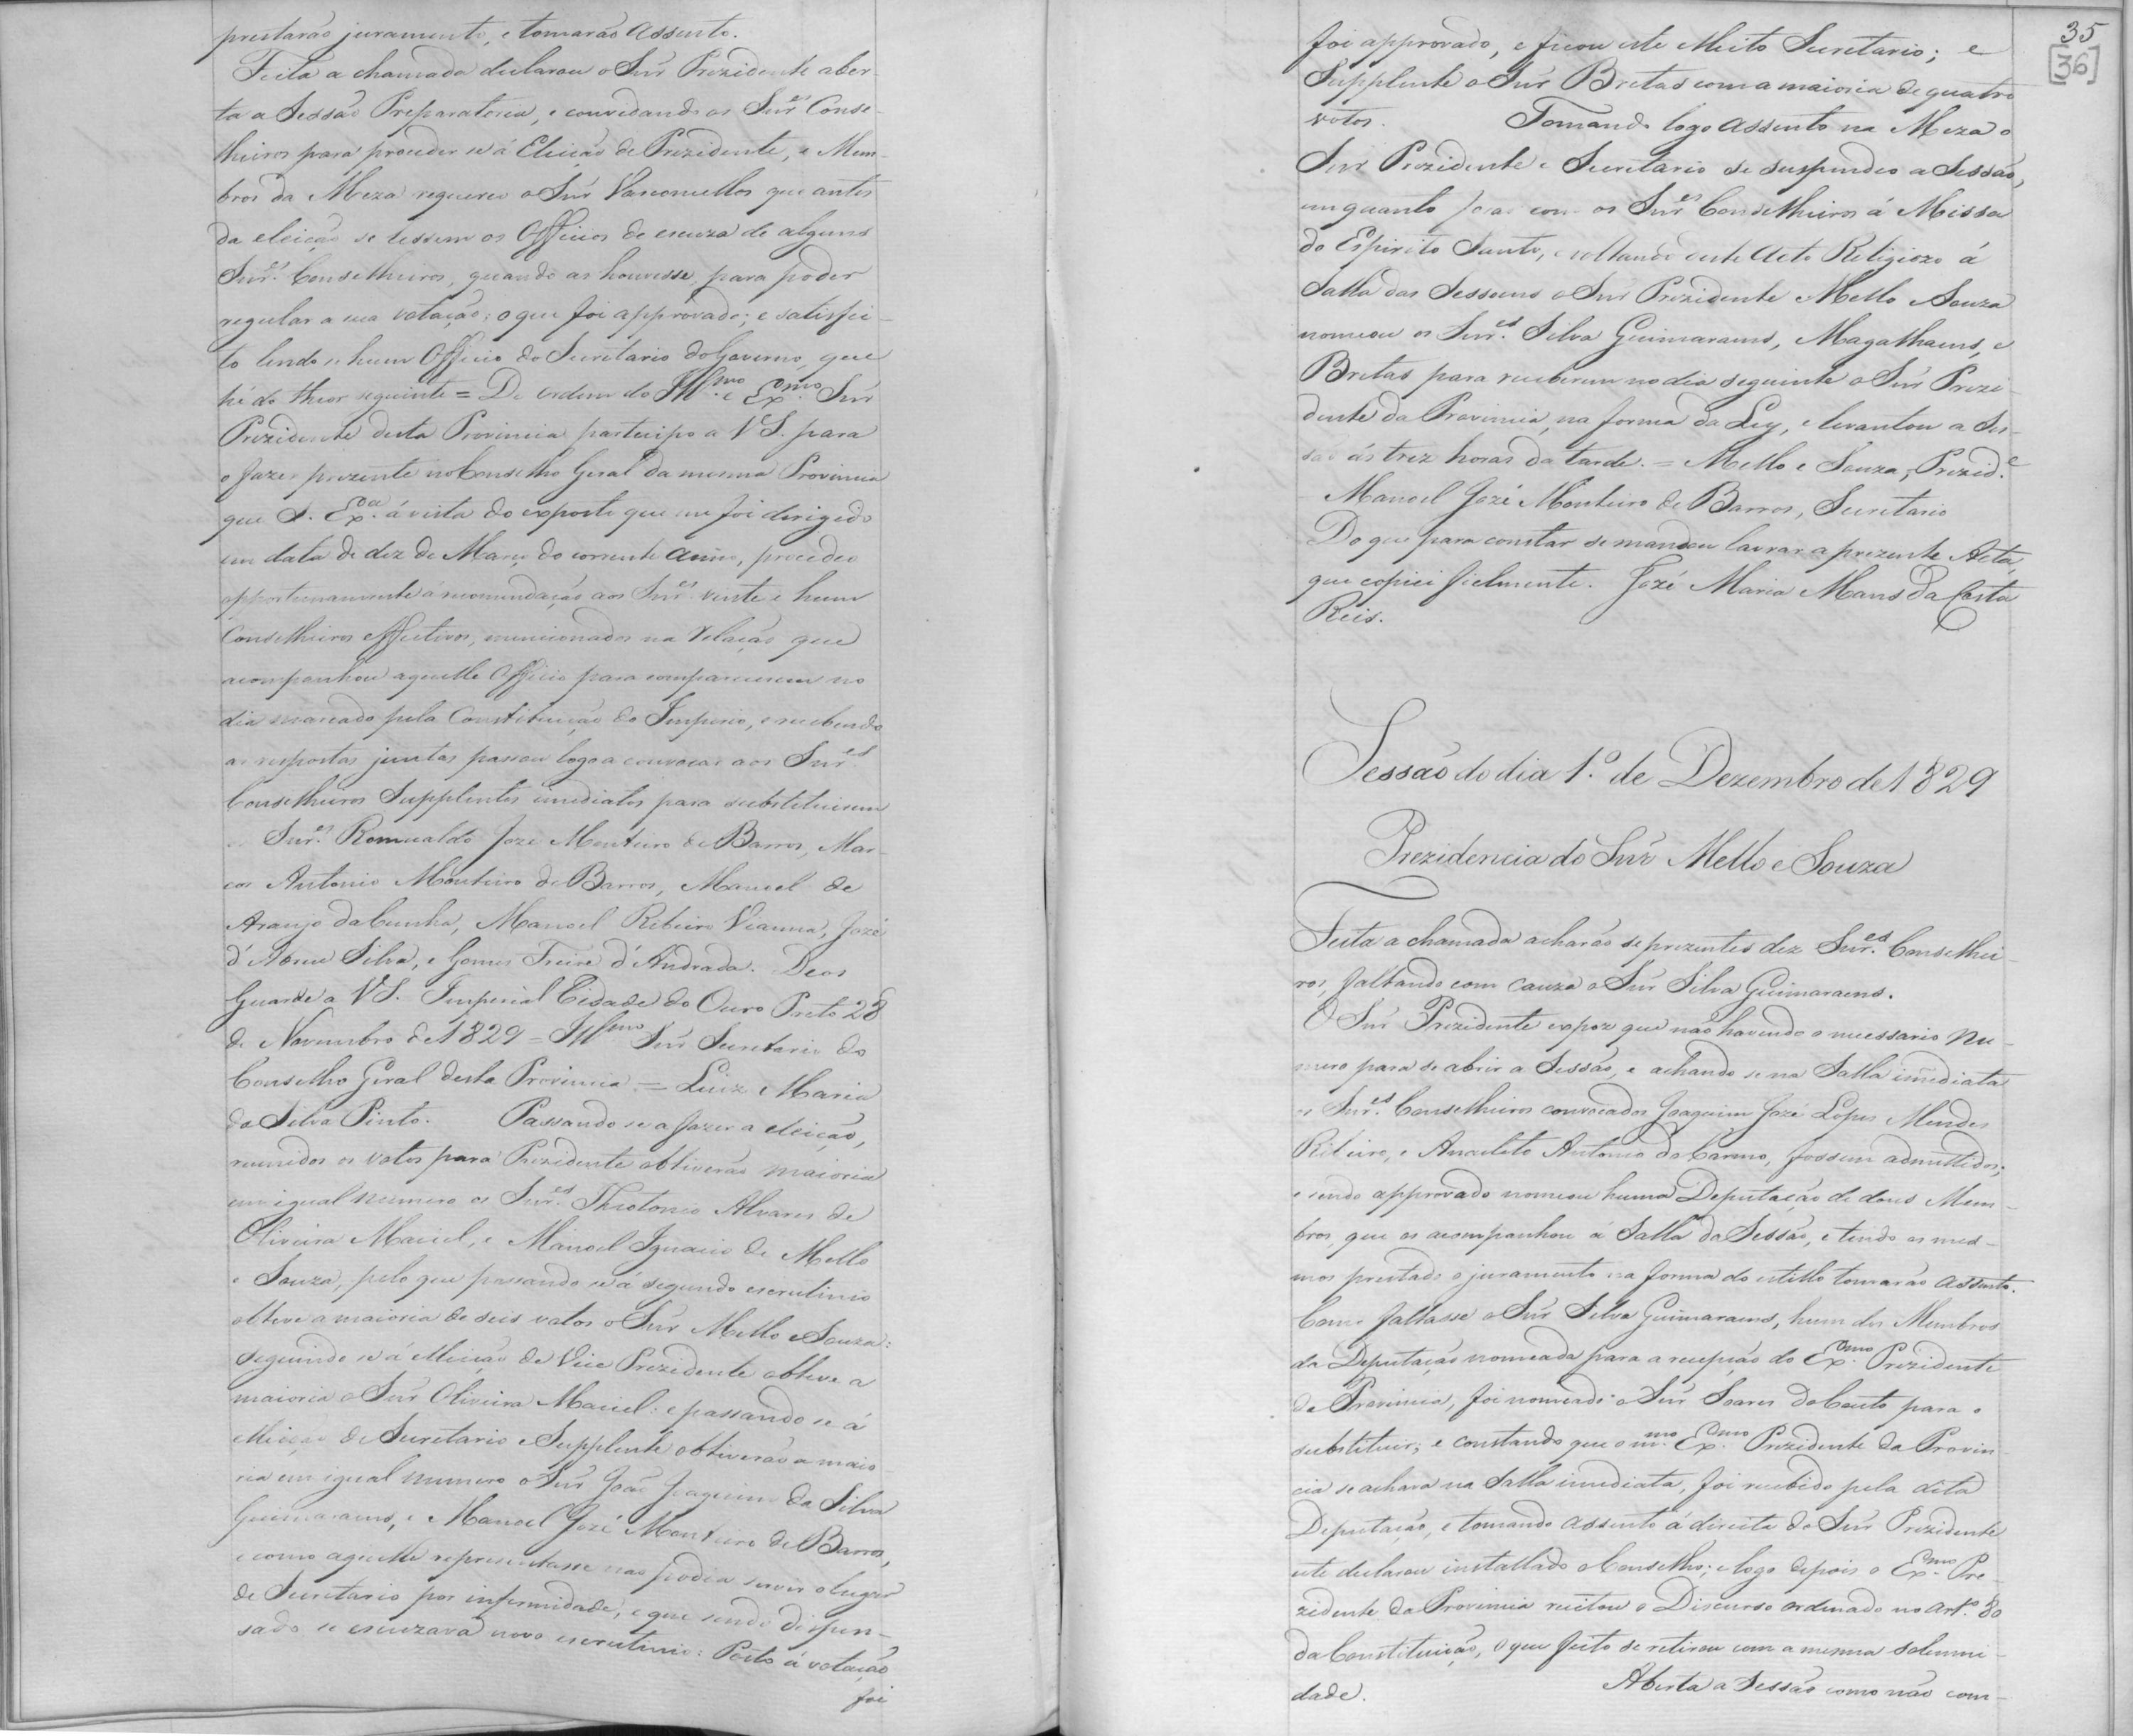 prestarão juramento, e tomarão assento.
Feita a chamada declarou o Snr̃ Prezidente aber-
ta a Sessão Preparatoria, e convidando os Snr.es Conse-
lheiros para proceder-se á Eleição de Prezidente, e Mem-
bros da Meza requereo o Snr̃ Vasconcellos que antes
da eleição se lessem os Officios de escuza de alguns
Snr.es Conselheiros, quando as houvesse, para poder
regular a sua votação; o que foi approvado; e satisfei-
to lendo-se hum Officio do Secretario do Governo, que
hé do theor seguinte = De ordem do Ill.mo e Ex.mo Snr̃
Prezidente desta Provincia participo a V S. para
o fazer prezente no Conselho Geral da mesma Provincia
que S. Ex.cia á vista do exposto que me foi dirigido
em data de dez de Março do corrente anno, procedeo
opportunamente á recomendação aos Snr.es vinte e hum
Conselheiros effectivos, mencionados na Relação que
acompanhou aquelle Officio para comparecerem no
dia marcado pela Constituição do Imperio, e recebendo
as respostas juntas passou logo a convocar aos Snr.es
Conselheiros Supplentes imediatos para substituirem
os Snr.es Romualdo José Monteiro de Barros, Mar-
cos Antonio Monteiro de Barros, Manoel de
Araujo da Cunha, Manoel Ribeiro Vianna, Jozé
d'Abreu Silva, e Gomes Freire d'Andrada. Deos
Guarde a V S. Imperial Cidade do Ouro Preto 28
de Novembro de 1829 = Ill.mo Snr̃ Secretario do
Conselho Geral desta Provincia = Luiz Maria
da Silva Pinto. Passando-se a fazer a eleição,
reunidos os votos para Prezidente obtiverão maioria
em igual numero os Snr.es Theotonio Alvares de
Oliveira Maciel, e Manoel Ignacio de Mello
e Souza, pelo que passando-se á segundo escrutinio
obteve a maioria de seis votos o Snr̃ Mello e Souza:
seguindo-se á elleição de Vice Prezidente obteve a
maioria o Snr̃ Oliveira Maciel: e passando-se á
elleição de Secretario e Supplente obtiverão a maio-
ria em igual numero o Snr̃ João Joaquim da Silva
Guimaraens, e Manoel Jozé Monteiro de Barros,
e como aquelle representasse não podia servir o lugar
de Secretario por infermidade, e que sendo dispen-
sado se escuzava novo escrutinio: Posto á votação
foi
35
[36]
foi approvado, e ficou este elleito Secretario; e
Supplente o Snr̃ Bretas com a maioria de quatro
votos. Tomando logo assento na Meza o
Snr̃ Prezidente e Secretario se suspendeo a Sessão,
em quanto os Snr.es Conselheiros á Missa
do Espirito Santo, e voltando deste Acto Religiozo á
Salla das Sessoens o Snr̃ Prezidente Mello e Souza
nomeou os Snr.es Silva Guimaraens, Magalhaens, e
Bretas para receberem no dia seguinte o Snr̃ Prezi-
dente da Provincia, na forma da Ley, e levantou a Ses-
são ás trez horas da tarde. = Mello e Souza, Prezid.e
Manoel Jozé Monteiro de Barros, Secretario
Do que para constar se mandou lavrar a prezente Acta,
que copiei fielmente. Jozé Maria Mans da Costa
Reis.
Sessão do dia 1.º de Dezembro de 1829
Prezidencia do Snr̃ Mello e Souza
Feita a chamada acharão-se prezentes dez Snr.es Conselhei-
ros, faltando com cauza o Snr̃ Silva Guimaraens.
O Snr̃ Prezidente expoz que não havendo o necessario nu-
mero para se abrir a Sessão, e achando-se na Salla imediata
os Snr.es Conselheiros convocados Joaquim Jozé Lopes Mendes
Ribeiro, e Anacleto Antonio do Carmo, fossem admittidos;
e sendo approvado nomeou huma Deputação de dous Mem-
bros, que os acompanhou á Salla da Sessão, e tendo os mes-
mos prestado o juramento na forma do estillo tomarão assento.
Como faltasse o Snr̃ Silva Guimaraens, hum dos Membros
da Deputação nomeada para a recepção do Ex.mo Prezidente
da Provincia, foi nomeado o Snr̃ Soares do Couto para o
substituir; e constando que o m.mo Ex.mo Prezidente da Provin-
cia se achava na Salla imediata, foi recebido pela dita
Deputação, e tomando assento á direita do Snr̃ Prezidente
este declarou installado o Conselho; e logo depois o Ex.mo Pre-
zidente da Provincia recitou o Discurso ordenado no Art.º 80
da Constituição, o que feito se retirou com a mesma solemni-
dade. Aberta a Sessão como não com-